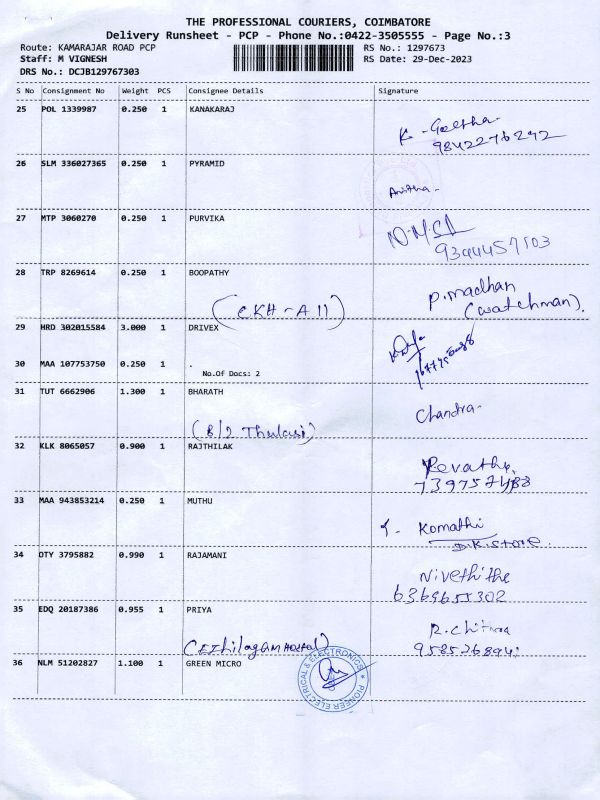 THE PROFESSIONAL COURIERS, COIMBATORE
Delivery Runsheet - PCP - Phone No.:0422-3505555 - Page No.:3
Route: KAMARAJAR ROAD PCP RS No.: 1297673
Staff: M VIGNESH RS Date: 29-Dec-2023
DRS No.: DCJB129767303
S No Consignment No Weight PCS Consignee Details Signature
25 POL 1339987 0.250 1 KANAKARAJ
K. Geetha
9842276292
26 SLM 336027365 0.250 1 PYRAMID
Anitha-
27 MTP 3060270 0.250 1 PURVIKA
9344457503
28 TRP 8269614 0.250 1 BOOPATHY
P. madhan
(CKH-A11) (watchman).
29 HRD 302015584 3.000 1 DRIVEX
30 MAA 107753750 0.250 1 .
No.Of Docs: 2
31 TUT 6662906 1.300 1 BHARATH
Chandra-
(B/2 Thulasi)
32 KLK 8065057 0.900 1 RAJTHILAK
Revathi
33 MAA 943853214 0.250 1 MUTHU
Komathi
D.K.Store.
34 OTY 3795882 0.990 1 RAJAMANI
Nivethithe
6369655302
35 EDQ 20187386 0.955 1 PRIYA
R. Chitraa
(Ezhilagam Hostel)
36 NLM 51202827 1.100 1 GREEN MICRO
PIONEER ELECTRICAL & ELECTRONICS